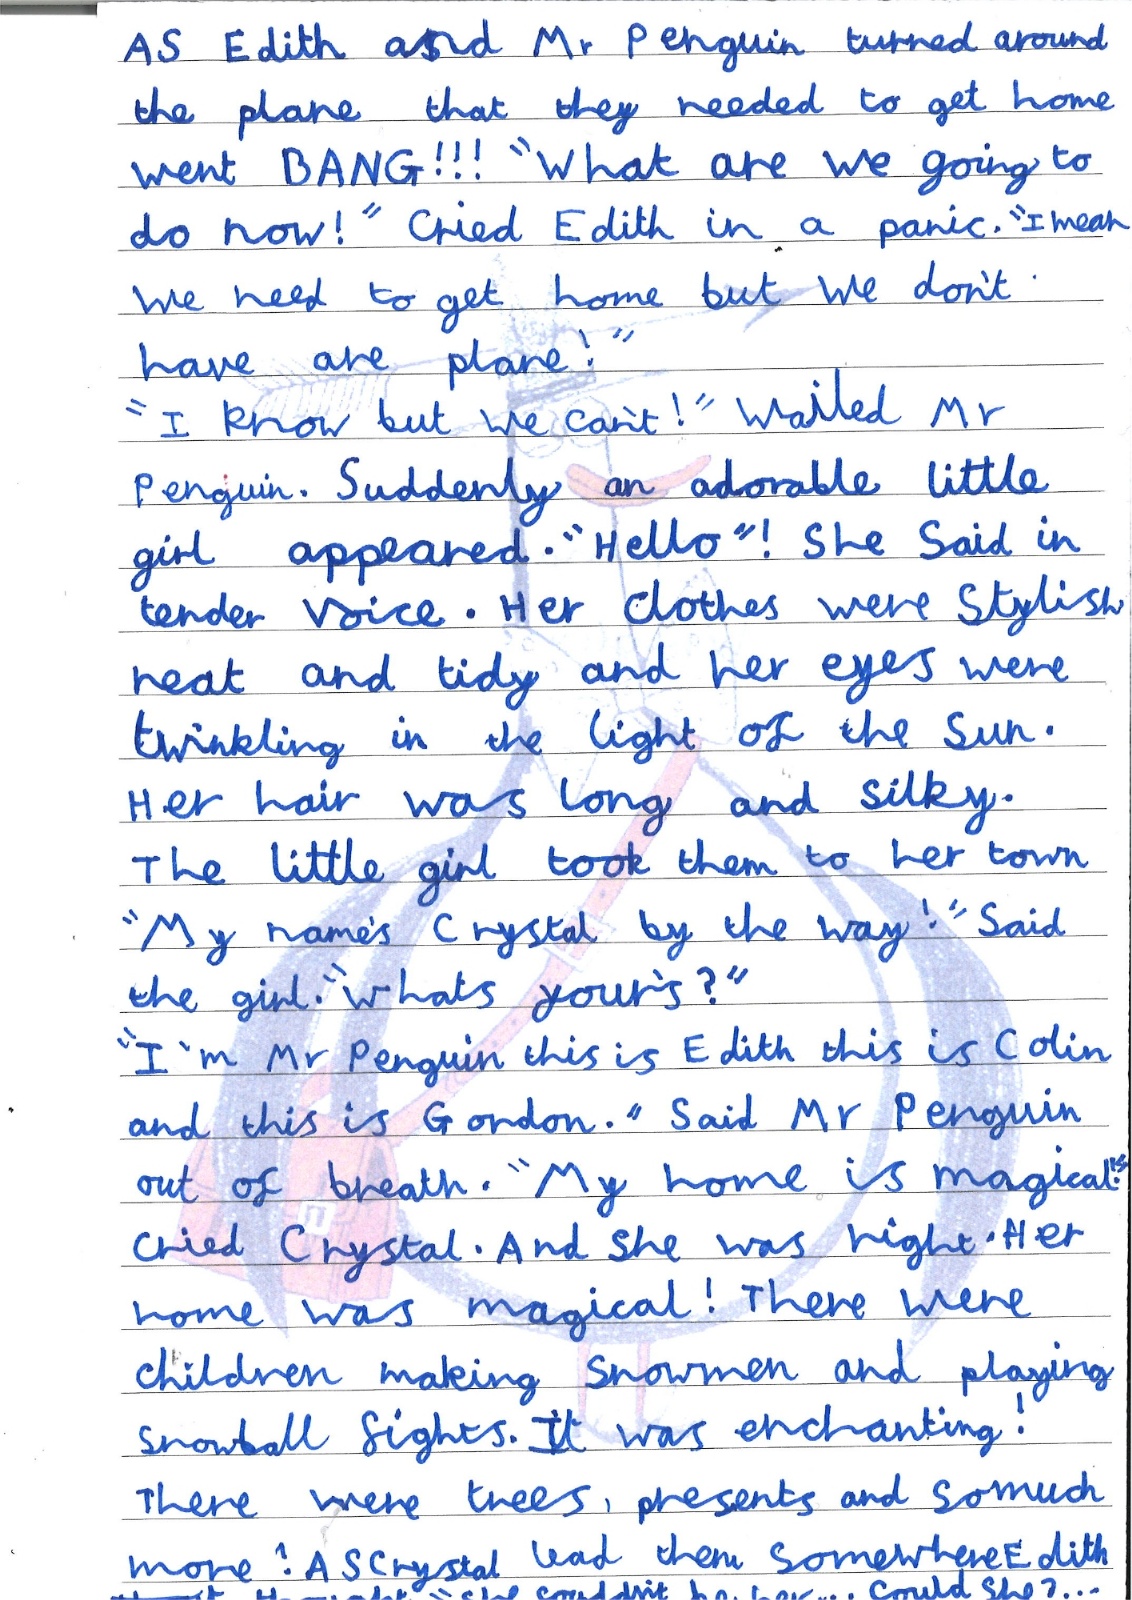 As Edith and Mr Penguin turned around
the plane that they needed to get home
went BANG!!! "What are we going to
do now!" Cried Edith in a panic. "I mean
we need to get home but we don't
have are plane!"
"I know but we can't!" Wailed Mr
Penguin. Suddenly an adorable little
girl appeared. "Hello"! She Said in
tender voice. Her clothes were Stylish
neat and tidy and her eyes were
twinkling in the light of the Sun.
Her hair was long and silky.
The little girl took them to her town
"My name's Crystal by the way!" Said
the girl. "whats your's?"
"I'm Mr Penguin this is Edith this is Colin
and this is Gordon." Said Mr Penguin
out of breath. "My home is magical!"
cried Crystal. And she was right. Her
home was magical! There were
children making snowmen and playing
snowball fights. It was enchanting!
There were trees, presents and somuch
more! AS Crystal lead them somewhere Edith
thought "she couldn't be her... Could She?...